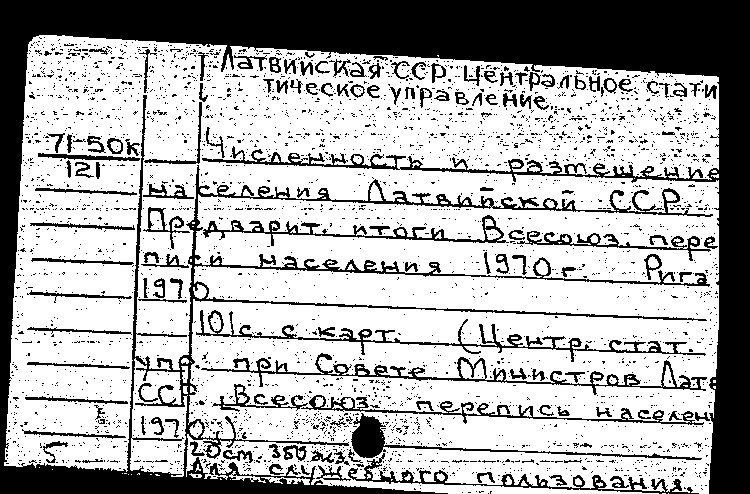 Латвийская ССР. Центральное стати
тическое управление
71-50к
121
Численность и размещение
населения Латвийской ССР.
Предварит. итоги Всесоюз. пере
писи населения 1970 г. Рига.
1970.
101с. с карт. (Центр. стат.
упр. при Совете Министров Латв
ССР. Всесоюз. перепись населен
1970.).
5
20ст. 350 экз.
Для служебного пользования.